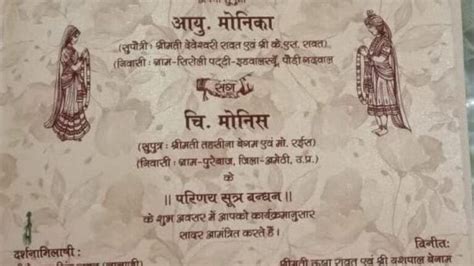 आयु. मोनिका
(सुपौत्री: श्रीमती देवेश्वरी रावत एवं श्री के.एस. रावत)
(निवासी: ग्राम-सिरोली पट्टी-इडवालस्यूँ, पौड़ी गढ़वाल
संग
चि. मोनिस
(सुपुत्र : श्रीमती तहसीना बेगम एवं मो. रईस)
(निवासी: ग्राम-पुरेबाज, जिला-अमेठी, उ.प्र.)
के
|| परिणय सूत्र बन्धन ||
के शुभ अवसर में आपको कार्यक्रमानुसार
सादर आमंत्रित करते हैं।
दर्शनाभिलाषी :
विनीत:
श्रीमती ऊषा रावत एवं श्री यशपाल बेनाम